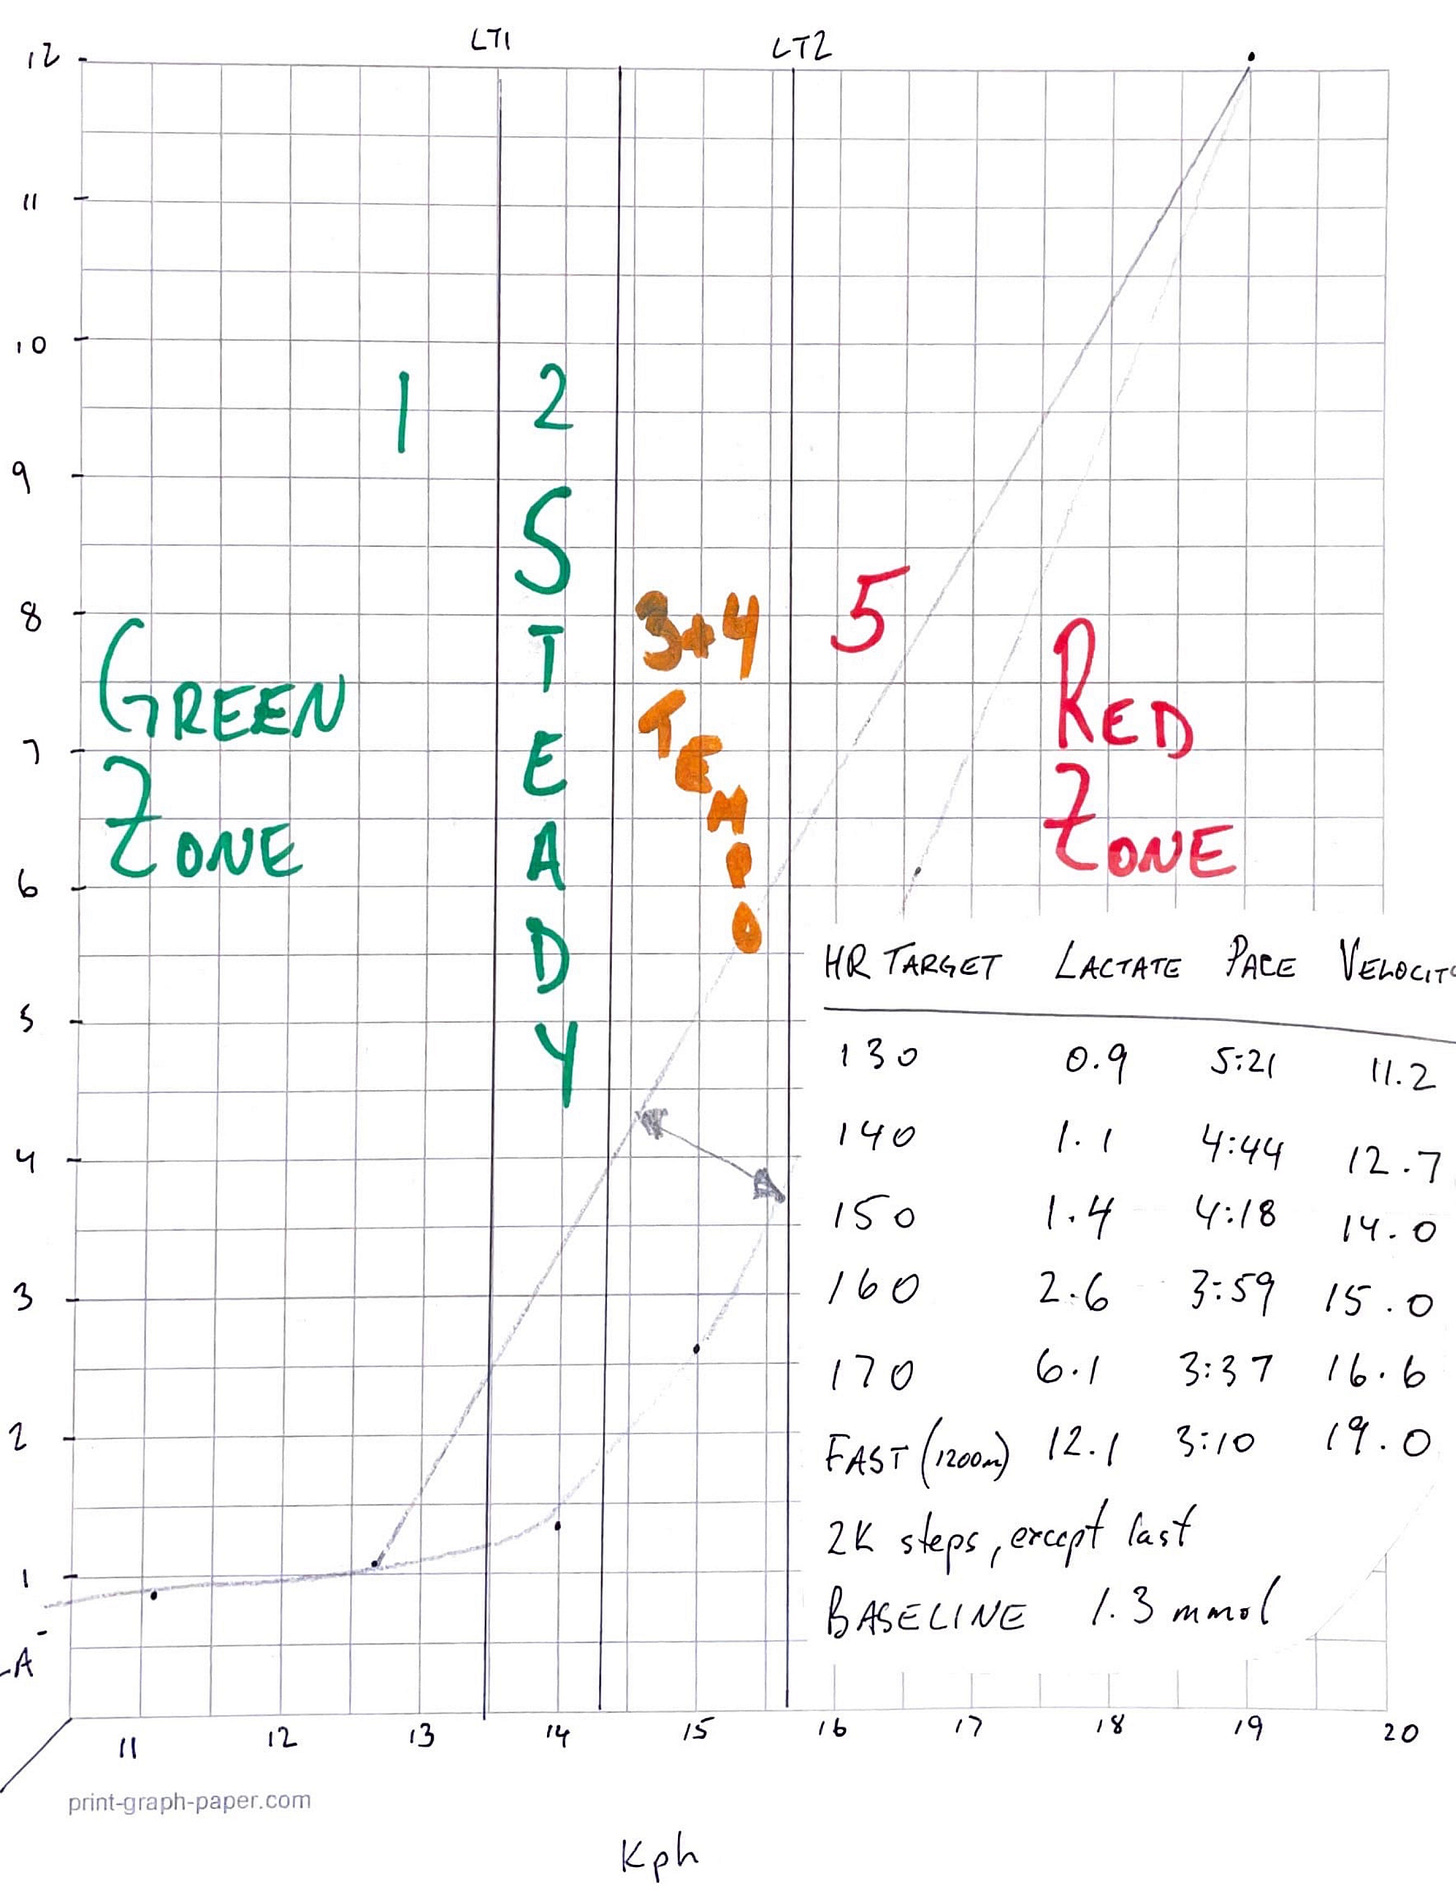 LT1
LT2
12
11
10
9
8
7
6
5
4
3
2
1
LA
1
2
STEADY
3+4
TEMPO
5
GREEN
ZONE
RED
ZONE
HR TARGET LACTATE PACE VELOCITY
130 0.9 5:21 11.2
140 1.1 4:44 12.7
150 1.4 4:18 14.0
160 2.6 3:59 15.0
170 6.1 3:37 16.6
FAST (1200m) 12.1 3:10 19.0
2K steps, except last
BASELINE 1.3 mmol
11 12 13 14 15 16 17 18 19 20
print-graph-paper.com
Kph